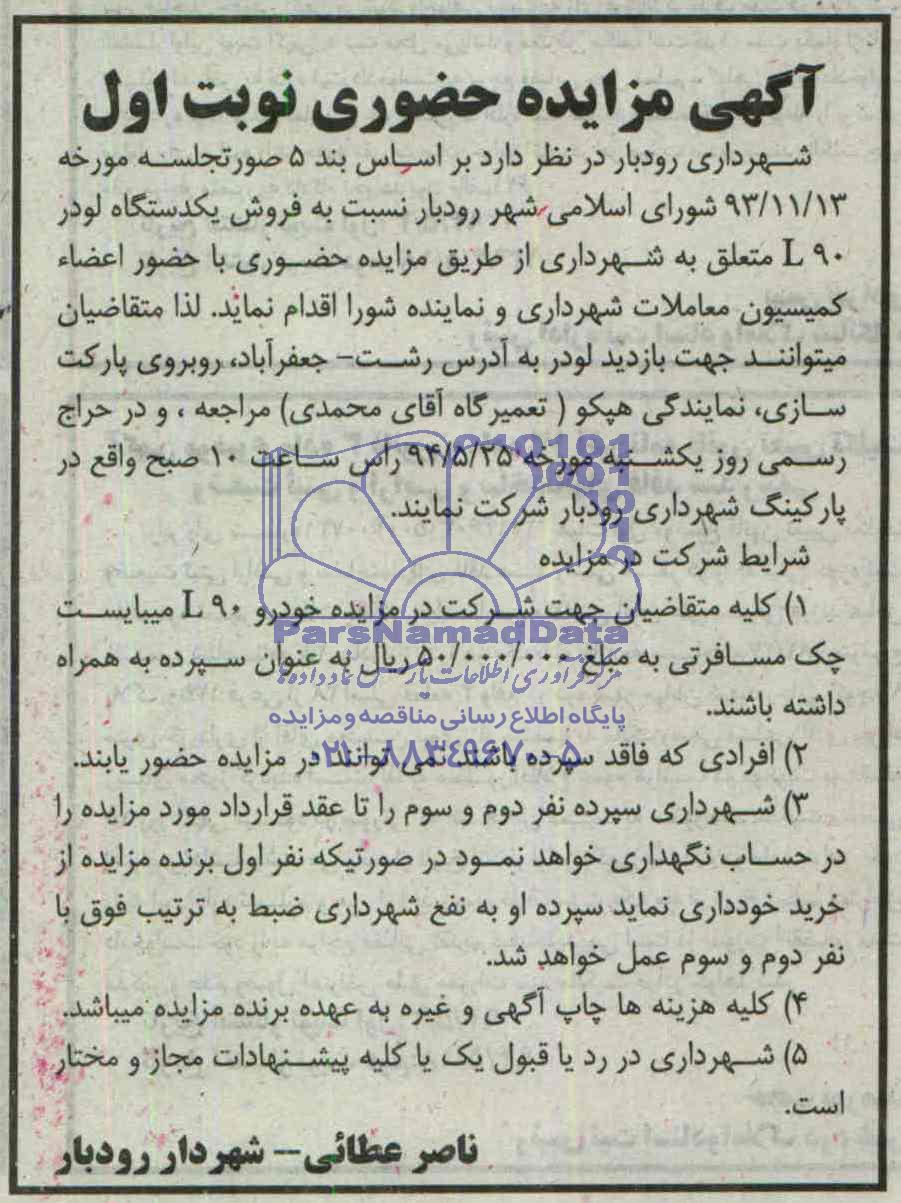 آگهی مزایده حضوری نوبت اول
شهرداری رودبار در نظر دارد بر اساس بند ۵ صورتجلسه مورخه
۹۳/۱۱/۱۳ شورای اسلامی شهر رودبار نسبت به فروش یکدستگاه لودر
L ۹۰ متعلق به شهرداری از طریق مزایده حضوری با حضور اعضاء
کمیسیون معاملات شهرداری و نماینده شورا اقدام نماید. لذا متقاضیان
میتوانند جهت بازدید لودر به آدرس رشت- جعفرآباد، روبروی پارکت
سازی، نمایندگی هپکو ( تعمیرگاه آقای محمدی) مراجعه ، و در حراج
رسمی روز یکشنبه مورخه ۹۴/۵/۲۵ راس ساعت ۱۰ صبح واقع در
پارکینگ شهرداری رودبار شرکت نمایند.
شرایط شرکت در مزایده
۱) کلیه متقاضیان جهت شرکت در مزایده خودرو L ۹۰ میبایست
چک مسافرتی به مبلغ ۵۰/۰۰۰/۰۰۰ ریال به عنوان سپرده به همراه
داشته باشند.
۲) افرادی که فاقد سپرده باشند نمی توانند در مزایده حضور یابند.
۳) شهرداری سپرده نفر دوم و سوم را تا عقد قرارداد مورد مزایده را
در حساب نگهداری خواهد نمود در صورتیکه نفر اول برنده مزایده از
خرید خودداری نماید سپرده او به نفع شهرداری ضبط به ترتیب فوق با
نفر دوم و سوم عمل خواهد شد.
۴) کلیه هزینه ها چاپ آگهی و غیره به عهده برنده مزایده میباشد.
۵) شهرداری در رد یا قبول یک یا کلیه پیشنهادات مجاز و مختار
است.
ناصر عطائی- شهردار رودبار
ParsNamadData
مرکز فرآوری اطلاعات پارس نماد داده ها
پایگاه اطلاع رسانی مناقصه و مزایده
۰۲۱-۸۸۳۴۹۶۷۰-۵